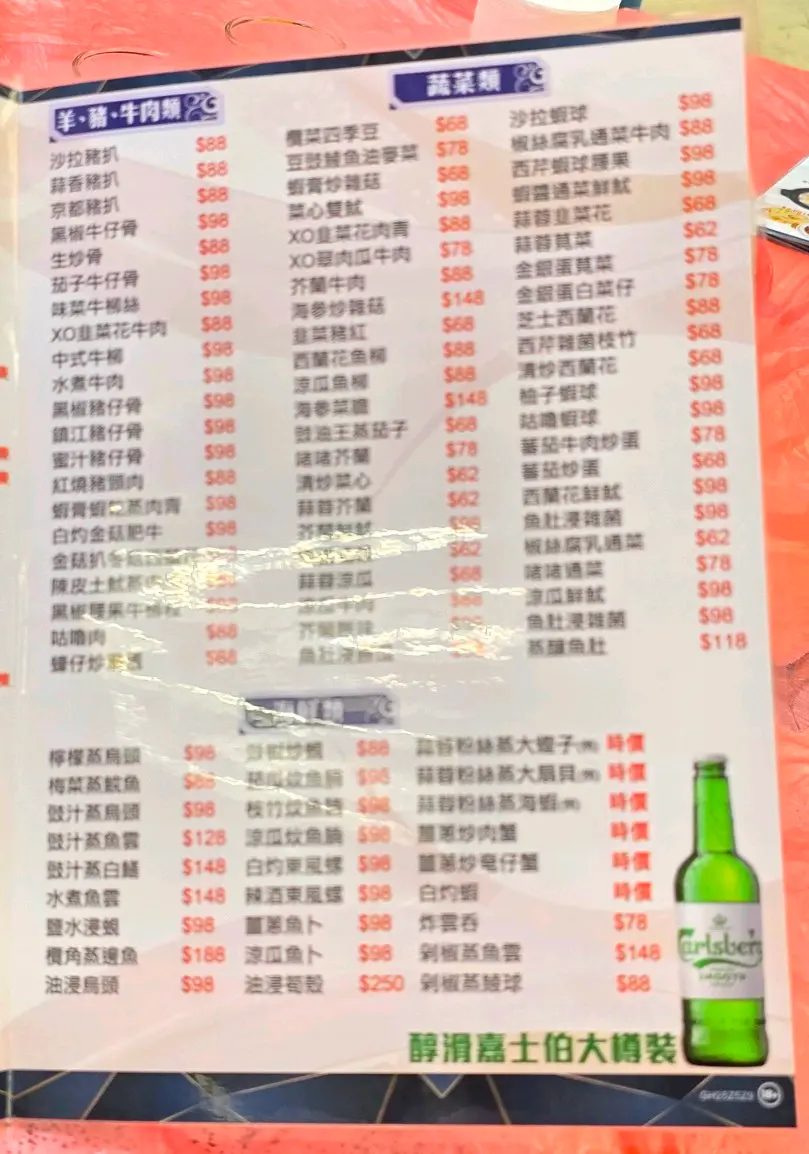 羊、豬、牛肉類
沙拉豬扒 $88
蒜香豬扒 $88
京都豬扒 $88
黑椒牛仔骨 $98
生炒骨 $88
茄子牛仔骨 $98
味菜牛柳絲 $98
XO韭菜花牛肉 $88
中式牛柳 $98
水煮牛肉 $98
黑椒豬仔骨 $98
鎮江豬仔骨 $98
蜜汁豬仔骨 $98
紅燒豬頸肉 $88
蝦膏蝦乾蒸肉青 $98
白灼金菇肥牛 $98
金菇扒
陳皮土魷蒸肉
黑椒腰果牛柳粒
咕嚕肉 $88
蠔仔炒 $88
蔬菜類
欖菜四季豆 $68
豆豉鯪魚油麥菜 $78
蝦膏炒雜菇 $68
菜心雙魷 $98
XO韭菜花肉青 $88
XO翠肉瓜牛肉 $78
芥蘭牛肉 $88
海參炒雜菇 $148
韭菜豬紅 $68
西蘭花魚柳 $88
涼瓜魚柳 $88
海參菜膽 $148
豉油王蒸茄子 $68
啫啫芥蘭 $78
清炒菜心 $62
蒜蓉芥蘭 $62
芥蘭鮮魷 $98
$62
蒜蓉涼瓜 $68
涼瓜牛肉
芥蘭
魚肚浸雜菌
沙拉蝦球 $98
椒絲腐乳通菜牛肉 $88
西芹蝦球腰果 $98
蝦醬通菜鮮魷 $98
蒜蓉韭菜花 $68
蒜蓉莧菜 $62
金銀蛋莧菜 $78
金銀蛋白菜仔 $78
芝士西蘭花 $88
西芹雜菌枝竹 $68
清炒西蘭花 $68
柚子蝦球 $98
咕嚕蝦球 $98
蕃茄牛肉炒蛋 $78
蕃茄炒蛋 $68
西蘭花鮮魷 $98
魚肚浸雜菌 $98
椒絲腐乳通菜 $62
啫啫通菜 $78
涼瓜鮮魷 $98
魚肚浸雜菌 $98
蒸釀魚肚 $118
海鮮類
檸檬蒸烏頭 $98
梅菜蒸鯇魚 $88
豉汁蒸烏頭 $98
豉汁蒸魚雲 $128
豉汁蒸白鱔 $148
水煮魚雲 $148
鹽水浸蜆 $98
欖角蒸邊魚 $188
油浸烏頭 $98
豉椒炒蜆 $88
茄瓜炆魚腩 $98
枝竹炆魚腩 $98
涼瓜炆魚腩 $98
白灼東風螺 $98
辣酒東風螺 $98
薑蔥魚卜 $98
涼瓜魚卜 $98
油浸筍殼 $250
蒜蓉粉絲蒸大蟶子 時價
蒜蓉粉絲蒸大扇貝 時價
蒜蓉粉絲蒸海蝦 時價
薑蔥炒肉蟹 時價
薑蔥炒奄仔蟹 時價
白灼蝦 時價
炸雲吞 $78
剁椒蒸魚雲 $148
剁椒蒸鯪球 $88
Carlsberg
醇滑嘉士伯大樽裝
18+